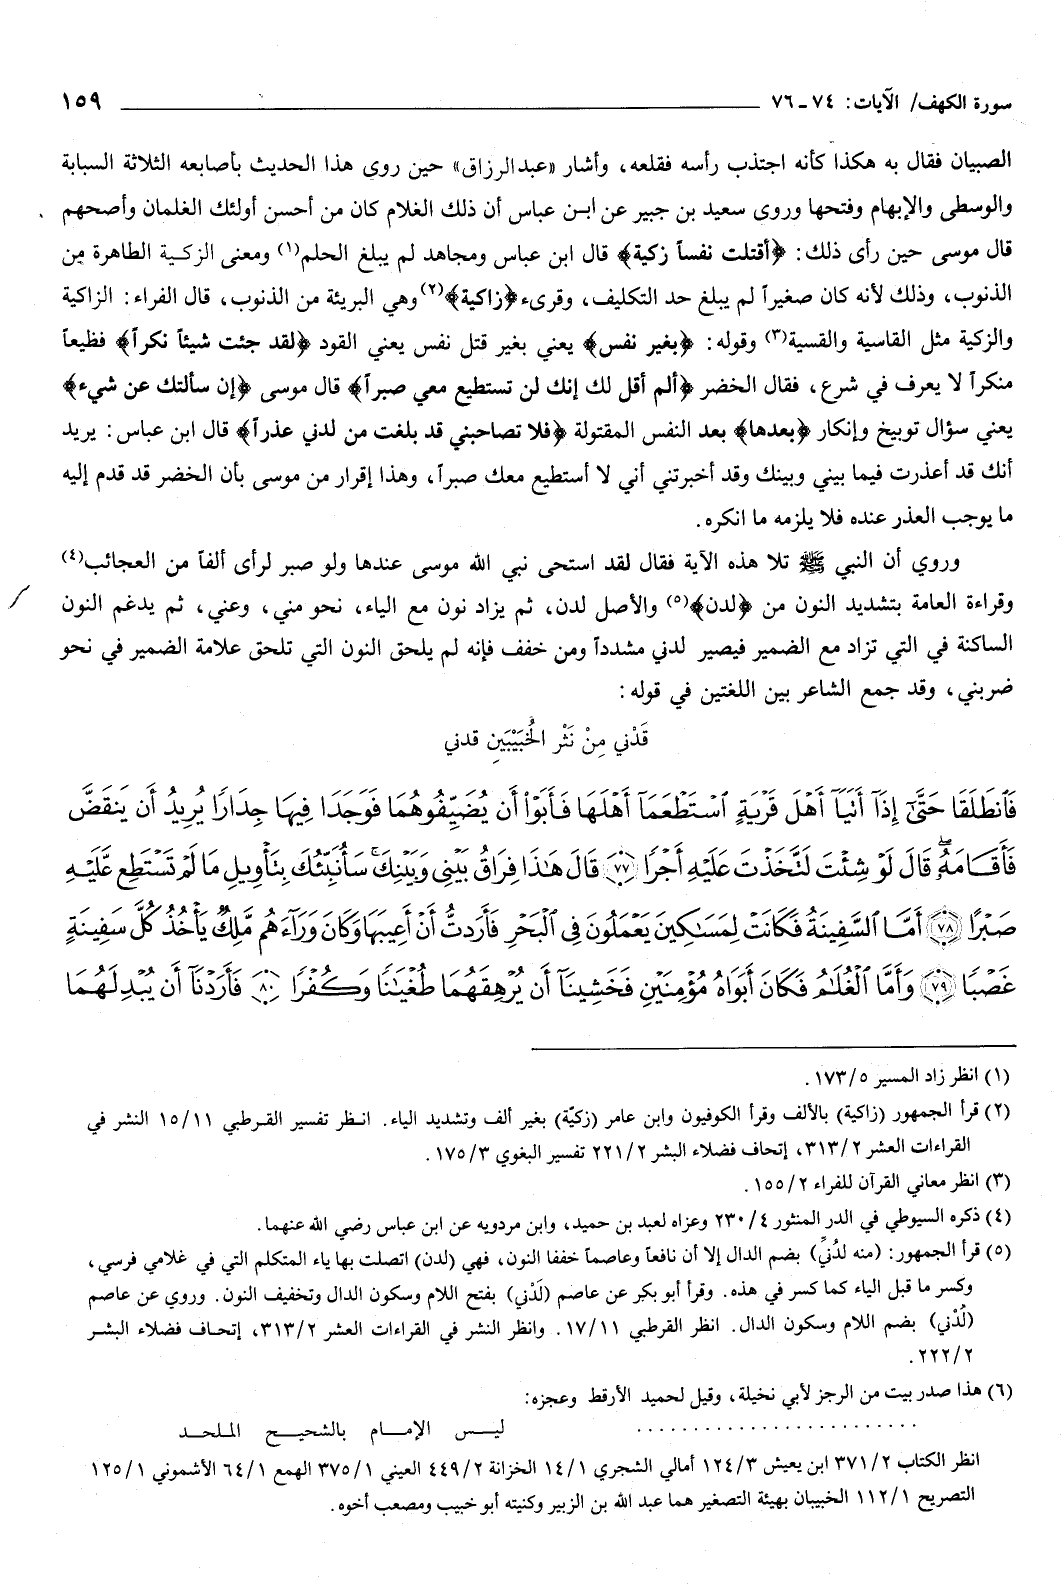 سورة الكهف/ الآيات: ٧٤ ـ ٧٦ ١٥٩
الصبيان فقال به هكذا كأنه اجتذب رأسه فقلعه، وأشار «عبد الرزاق» حين روى هذا الحديث بأصابعه الثلاثة السبابة
والوسطى والإبهام وفتحها وروى سعيد بن جبير عن ابن عباس أن ذلك الغلام كان من أحسن أولئك الغلمان وأصحهم
قال موسى حين رأى ذلك: ﴿أقتلت نفساً زكية﴾ قال ابن عباس ومجاهد لم يبلغ الحلم(١) ومعنى الزكية الطاهرة من
الذنوب، وذلك لأنه كان صغيراً لم يبلغ حد التكليف، وقرىء ﴿زاكية﴾(٢) وهي البريئة من الذنوب، قال الفراء: الزاكية
والزكية مثل القاسية والقسية(٣) وقوله: ﴿بغير نفس﴾ يعني بغير قتل نفس يعني القود ﴿لقد جئت شيئاً نكراً﴾ فظيعاً
منكراً لا يعرف في شرع، فقال الخضر ﴿ألم أقل لك إنك لن تستطيع معي صبراً﴾ قال موسى ﴿إن سألتك عن شيء﴾
يعني سؤال توبيخ وإنكار ﴿بعدها﴾ بعد النفس المقتولة ﴿فلا تصاحبني قد بلغت من لدني عذراً﴾ قال ابن عباس: يريد
أنك قد أعذرت فيما بيني وبينك وقد أخبرتني أني لا أستطيع معك صبراً، وهذا إقرار من موسى بأن الخضر قد قدم إليه
ما يوجب العذر عنده فلا يلزمه ما انكره.
وروي أن النبي ﷺ تلا هذه الآية فقال لقد استحى نبي الله موسى عندها ولو صبر لرأى ألفاً من العجائب(٤)
وقراءة العامة بتشديد النون من ﴿لدن﴾(٥) والأصل لدن، ثم يزاد نون مع الياء، نحو مني، وعني، ثم يدغم النون
الساكنة في التي تزاد مع الضمير فيصير لدني مشدداً ومن خفف فإنه لم يلحق النون التي تلحق علامة الضمير في نحو
ضربني، وقد جمع الشاعر بين اللغتين في قوله:
قَدْني مِنْ نَثْر الخُبَيْبَيْنِ قدني
فَٱنطَلَقَا حَتَّىٰٓ إِذَآ أَتَيَآ أَهْلَ قَرْيَةٍ ٱسْتَطْعَمَآ أَهْلَهَا فَأَبَوْا۟ أَن يُضَيِّفُوهُمَا فَوَجَدَا فِيهَا جِدَارًا يُرِيدُ أَن يَنقَضَّ
فَأَقَامَهُۥۖ قَالَ لَوْ شِئْتَ لَتَّخَذْتَ عَلَيْهِ أَجْرًا ﴿٧٧﴾ قَالَ هَٰذَا فِرَاقُ بَيْنِى وَبَيْنِكَۚ سَأُنَبِّئُكَ بِتَأْوِيلِ مَا لَمْ تَسْتَطِع عَّلَيْهِ
صَبْرًا ﴿٧٨﴾ أَمَّا ٱلسَّفِينَةُ فَكَانَتْ لِمَسَٰكِينَ يَعْمَلُونَ فِى ٱلْبَحْرِ فَأَرَدتُّ أَنْ أَعِيبَهَا وَكَانَ وَرَآءَهُم مَّلِكٌ يَأْخُذُ كُلَّ سَفِينَةٍ
غَصْبًا ﴿٧٩﴾ وَأَمَّا ٱلْغُلَٰمُ فَكَانَ أَبَوَاهُ مُؤْمِنَيْنِ فَخَشِينَآ أَن يُرْهِقَهُمَا طُغْيَٰنًا وَكُفْرًا ﴿٨٠﴾ فَأَرَدْنَآ أَن يُبْدِلَهُمَا
(١) انظر زاد المسير ٥/ ١٧٣.
(٢) قرأ الجمهور (زاكية) بالألف وقرأ الكوفيون وابن عامر (زكيّة) بغير ألف وتشديد الياء. انظر تفسير القرطبي ١١/ ١٥ النشر في
القراءات العشر ٢/ ٣١٣، إتحاف فضلاء البشر ٢/ ٢٢١ تفسير البغوي ٣/ ١٧٥.
(٣) انظر معاني القرآن للفراء ٢/ ١٥٥.
(٤) ذكره السيوطي في الدر المنثور ٤/ ٢٣٠ وعزاه لعبد بن حميد، وابن مردويه عن ابن عباس رضي الله عنهما.
(٥) قرأ الجمهور: (منه لدُنِّي) بضم الدال إلا أن نافعاً وعاصماً خففا النون، فهي (لدن) اتصلت بها ياء المتكلم التي في غلامي فرسي،
وكسر ما قبل الياء كما كسر في هذه. وقرأ أبو بكر عن عاصم (لَدْني) بفتح اللام وسكون الدال وتخفيف النون. وروي عن عاصم
(لُدْني) بضم اللام وسكون الدال. انظر القرطبي ١١/ ١٧. وانظر النشر في القراءات العشر ٢/ ٣١٣، إتحاف فضلاء البشر
٢/ ٢٢٢.
(٦) هذا صدر بيت من الرجز لأبي نخيلة، وقيل لحميد الأرقط وعجزه:
...................... ليس الإمام بالشحيح الملحد
انظر الكتاب ٢/ ٣٧١ ابن يعيش ٣/ ١٢٤ أمالي الشجري ١/ ١٤ الخزانة ٢/ ٤٤٩ العيني ١/ ٣٧٥ الهمع ١/ ٦٤ الأشموني ١/ ١٢٥
التصريح ١/ ١١٢ الخبيبان بهيئة التصغير هما عبد الله بن الزبير وكنيته أبو خبيب ومصعب أخوه.